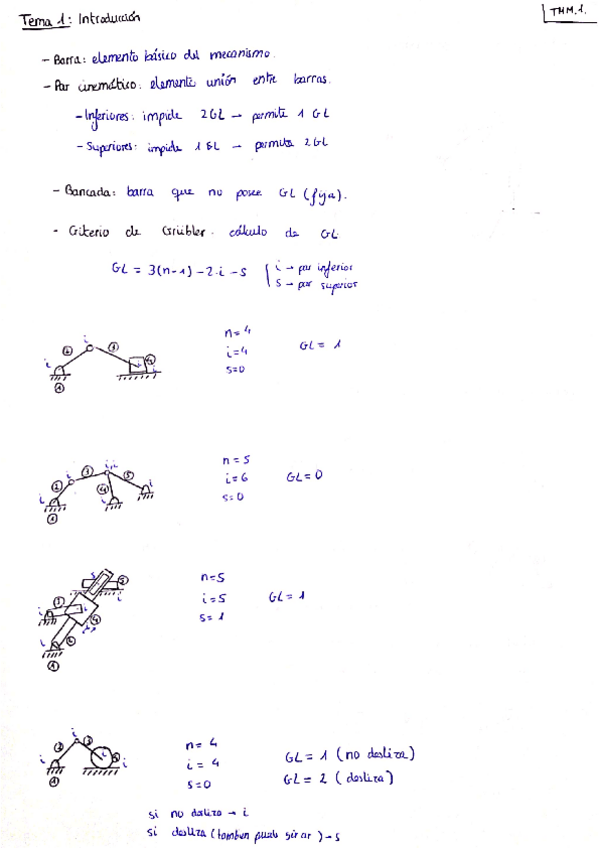 THM.1.
Tema 1: Introducción
- Barra: elemento básico del mecanismo.
- Par cinemático: elemento unión entre barras.
- Inferiores: impide 2GL → permite 1 GL
- Superiores: impide 1GL → permite 2GL
- Bancada: barra que no posee GL (fija).
- Criterio de Grübler: cálculo de GL
GL = 3(n-1) - 2·i - s
i → par inferior
s → par superior
n=4
i=4
s=0
GL = 1
n=5
i=6
s=0
GL=0
n=5
i=5
s=1
GL=1
n=4
i=4
s=0
GL=1 (no desliza)
GL=2 (desliza)
si no desliza → i
si desliza (tambien puede girar) → s